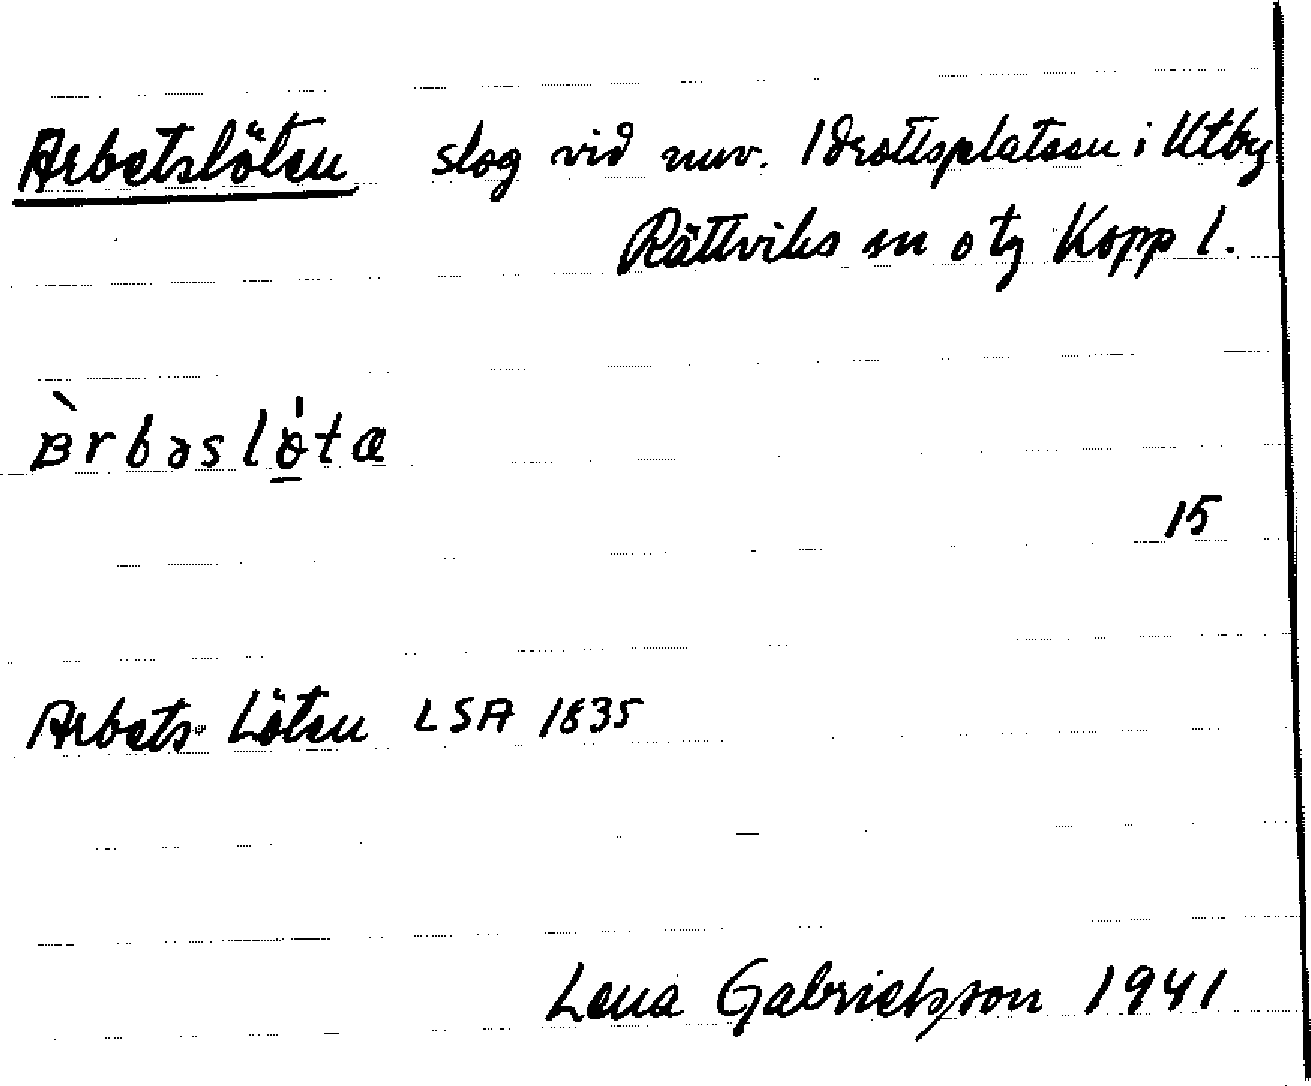 Arbetslöten slog vid nuv. Idrottsplatsen i Utby
Rättviks sn o tg Kopp l.
àrbəslö̀tα
15
Arbets-Löten LSA 1835
Lena Gabrielsson 1941